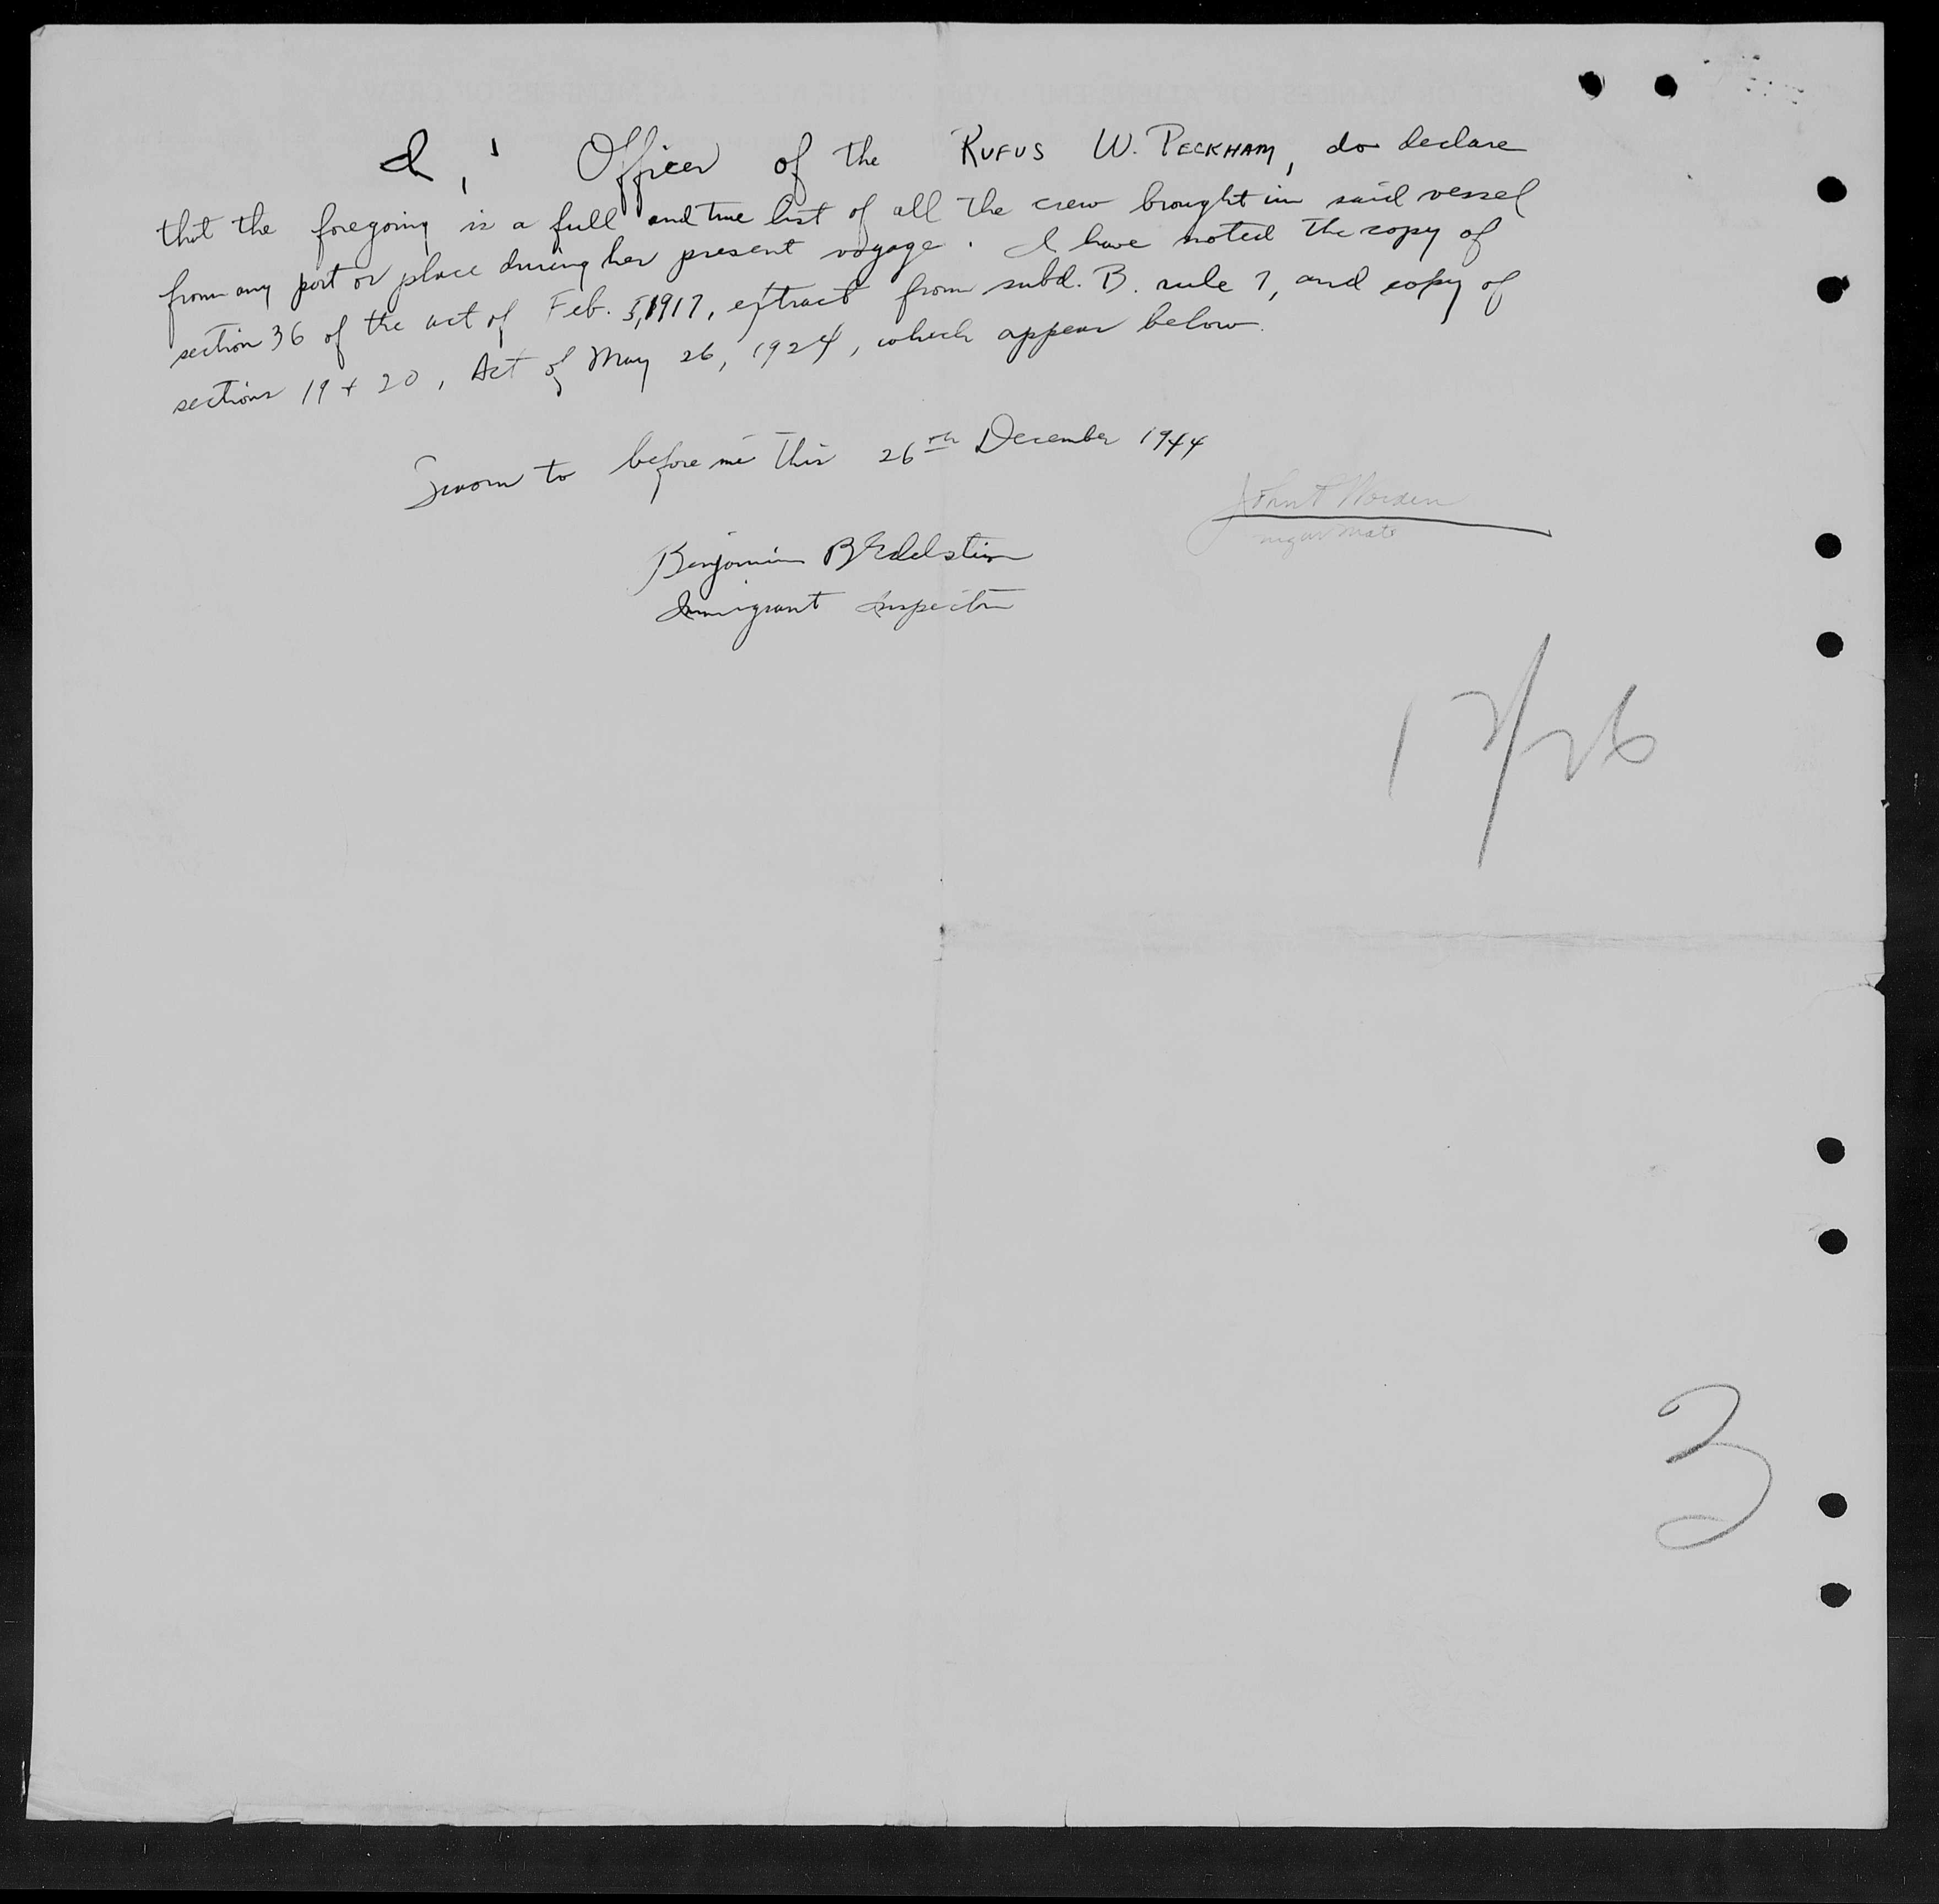 I, Officer of the RUFUS W. PECKHAM, do declare
that the foregoing is a full and true list of all the crew brought in said vessel
from any port or place during her present voyage. I have noted the copy of
section 36 of the act of Feb. 5, 1917, extract from subd. B. rule 7, and copy of
sections 19 + 20, Act of May 26, 1924, which appear below.
Sworn to before me this 26th December 1944
John
mate
Benjamin B Edelstein
Immigrant Inspector
12/26
3